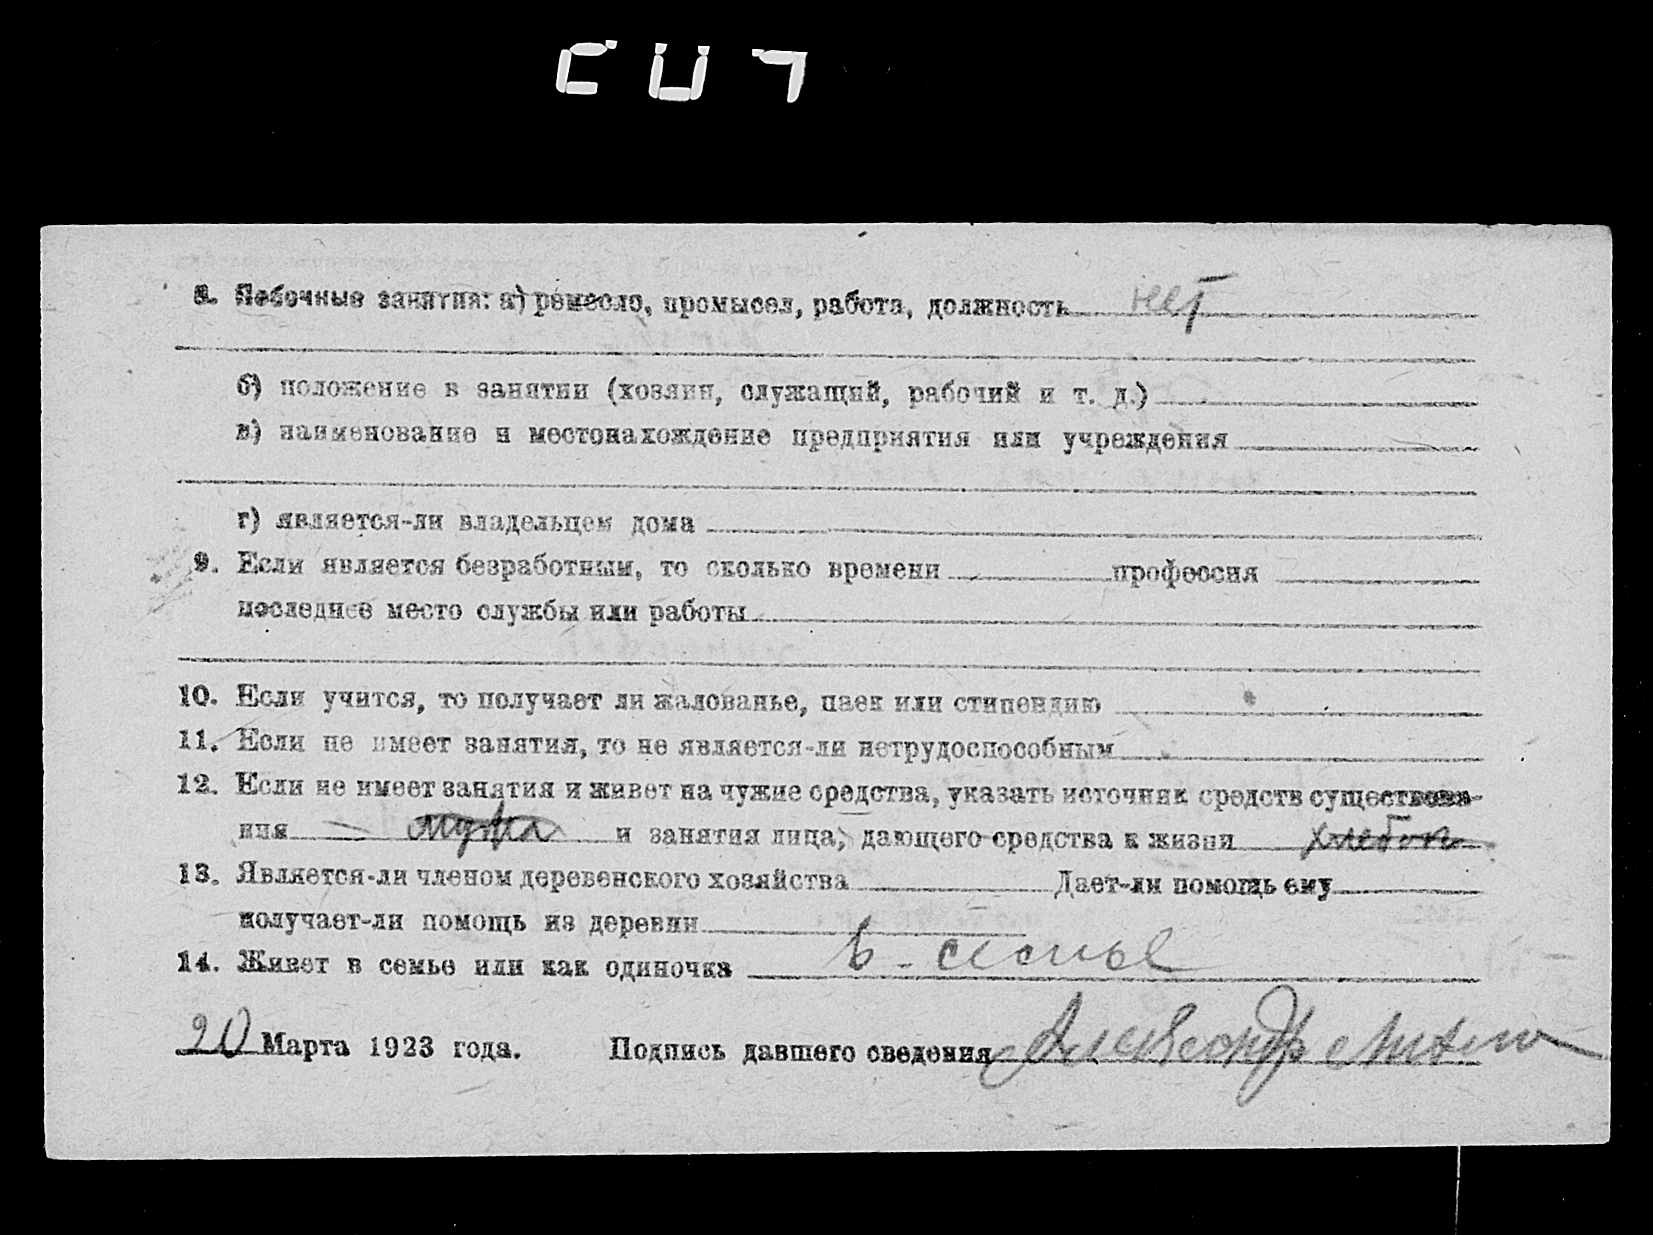 8. Побочные занятия: а) ремесло, промысел, работа, должность нет
б) положение в занятии (хозяин, служащий, рабочий и т. д.)
в) наименование и местонахождение предприятия или учреждения
г) является-ли владельцем дома
9. Если является безработным, то сколько времени профессия
последнее место службы или работы
10. Если учится, то получает ли жалованье, паек или стипендию
11. Если не имеет занятия, то не является-ли нетрудоспособным
12. Если не имеет занятия и живет на чужие средства, указать источник средств существова-
ния мужа и занятия лица, дающего средства к жизни хлебоп
13. Является-ли членом деревенского хозяйства Дает-ли помощь ему
получает-ли помощь из деревни
14. Живет в семье или как одиночка в-семье
20 Марта 1923 года. Подпись давшего сведения